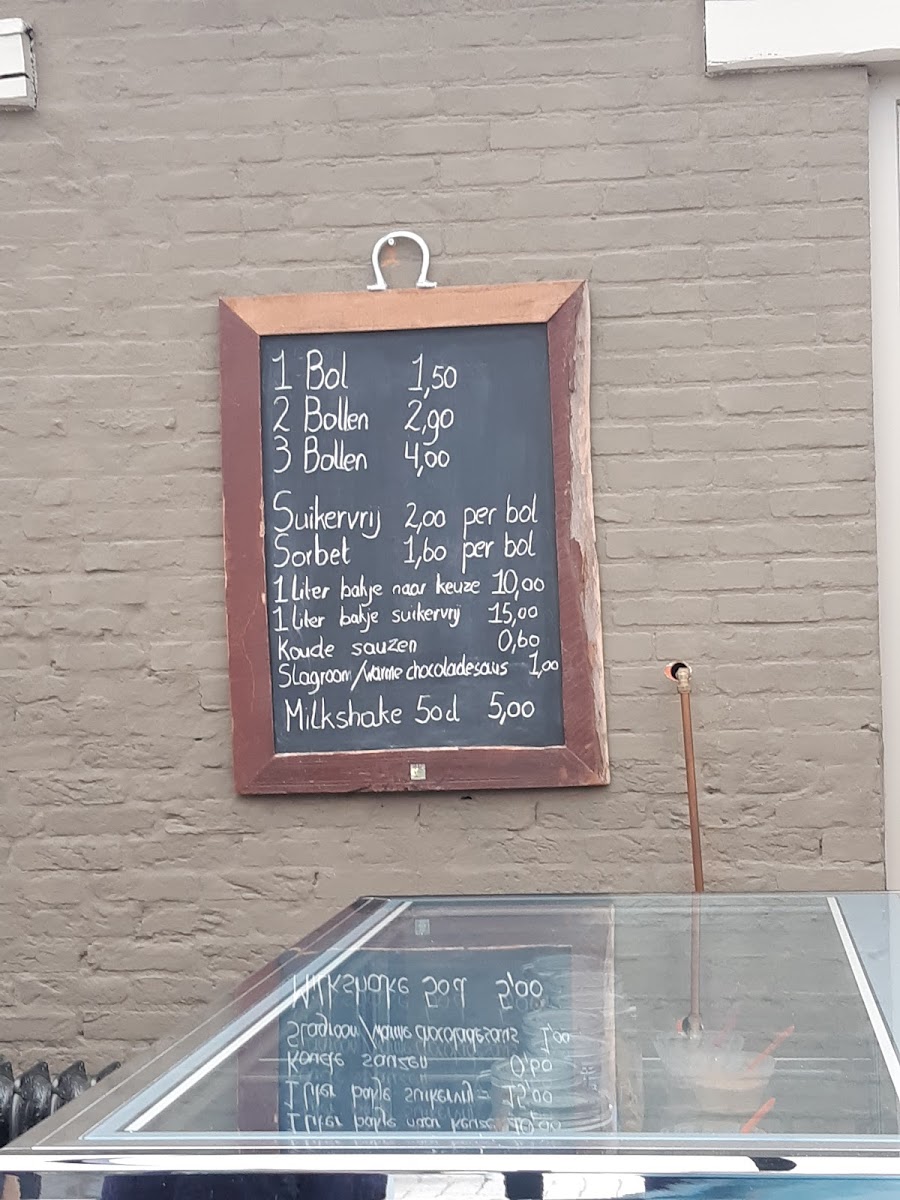 1 Bol 1,50
2 Bollen 2,90
3 Bollen 4,00
Suikervrij 2,00 per bol
Sorbet 1,60 per bol
1 Liter bakje naar keuze 10,00
1 liter bakje suikervrij 15,00
Koude sauzen 0,60
Slagroom/warme chocoladesaus 1,00
Milkshake 50cl 5,00